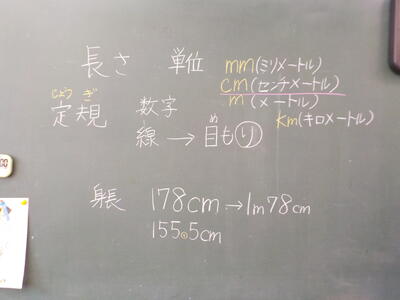 長さ 単位 mm(ミリメートル)
cm(センチメートル)
m(メートル)
km(キロメートル)
じょうぎ
定規 数字
線 → 目もり
め
身長 178cm → 1m78cm
155.5cm